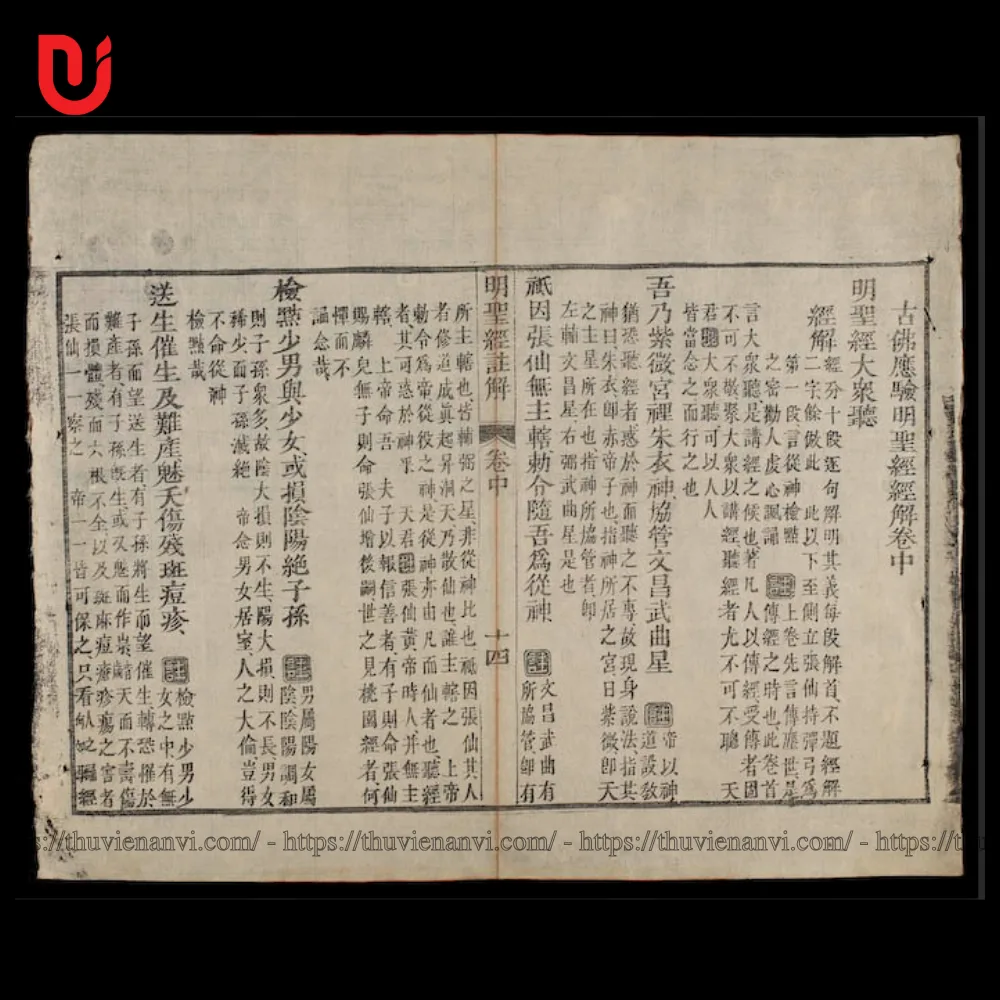 古佛應驗明聖經經解卷中
明聖經大衆聽
經解 經分十段逐句解明其義每段解首不題經解
二字餘做此 此以下至側立張仙持彈弓爲
第一段言從神檢㸃
之密勸人虔心諷誦 註 上卷先言傳歷世是
傳經之時也此卷首
言大衆聽是講經之候也著凡人以傳經受傳者固
不可不敬聚大衆以講經聽經者尤不可不聽 天
君 聽大衆聽可以人人
皆當念之而行之也
吾乃紫微宮裡朱衣神協管文昌武曲星 註 帝以神
道設敎
猶恐聽經者惑於神而聽之不專故現身說法指其
神曰朱衣即赤帝子也指神所居之宮曰紫微即天
之主星所在也指神所協管者即
左輔文昌星右弼武曲星是也
祇因張仙無主轄勅令隨吾爲從神 註 文昌武曲有
所協管即有
明聖經註解 卷中 十四
所主轄也皆輔弼之星非從神比也祗因張仙其人
者修道成眞起昇洞天乃散仙也誰主轄之 上帝
勅令爲帝從役之神是從神亦由凡而仙者也聽經
者其可惑於神乎 天君 註 張仙黄帝時人并無主
轄 上帝命吾 夫子以報信善者有子則命張仙
賜麟兒無子則命張仙增後嗣世之見桃園經者何
憚而不
誦念哉
檢㸃少男與少女或損陰陽絶子孫 註 男屬陽女屬
陰陰陽調和
則子孫衆多故陰大損則不生陽大損則不長男女
稀少而子孫滅絶 帝念男女居室人之大倫豈得
不命從神
檢㸃哉
送生催生及難產魃夭傷殘斑痘疹 註 檢㸃少男少
女之中有無
子孫而望送生者有子孫將生而望催生轉恐懼於
難產者有子孫旣生或又魃而作祟 夭而不壽傷
而損體殘而六根不全以及斑麻痘瘡疹瘍之害者
張仙一一察之 帝一一皆可保之只看 經
https://thuvienanvi.com/ - https://thuvienanvi.com/ - https://thuvienanvi.com/ - https://th